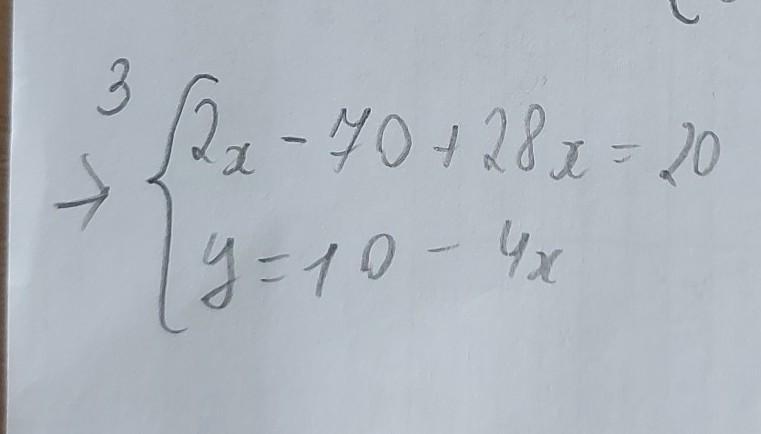 3
→ { 2x - 70 + 28x = 20
y = 10 - 4x